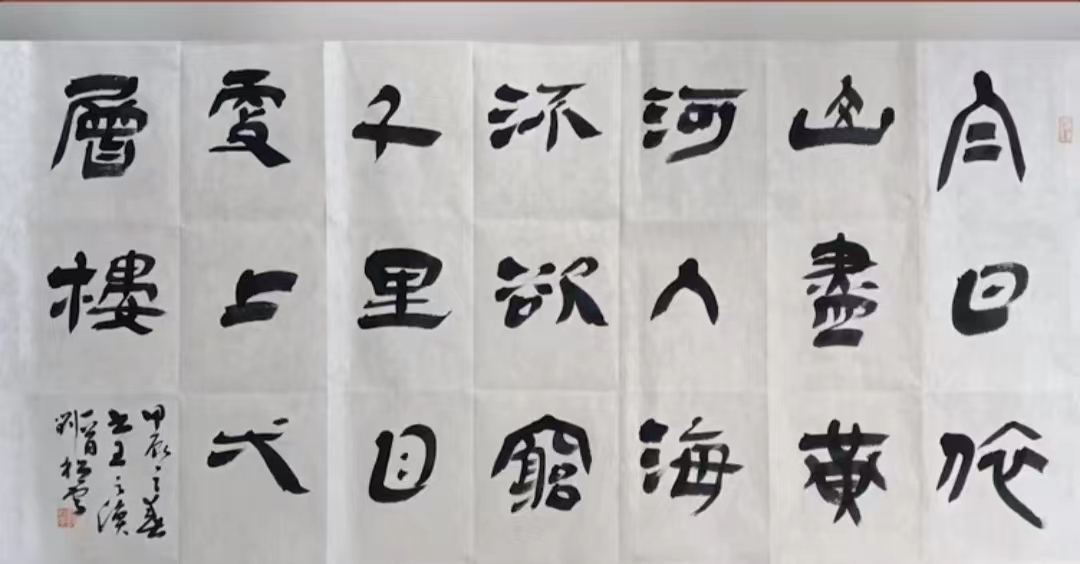 白日依
山盡黃
河入海
流欲窮
千里目
更上弌
層樓
甲辰之春
书王之渙
一首